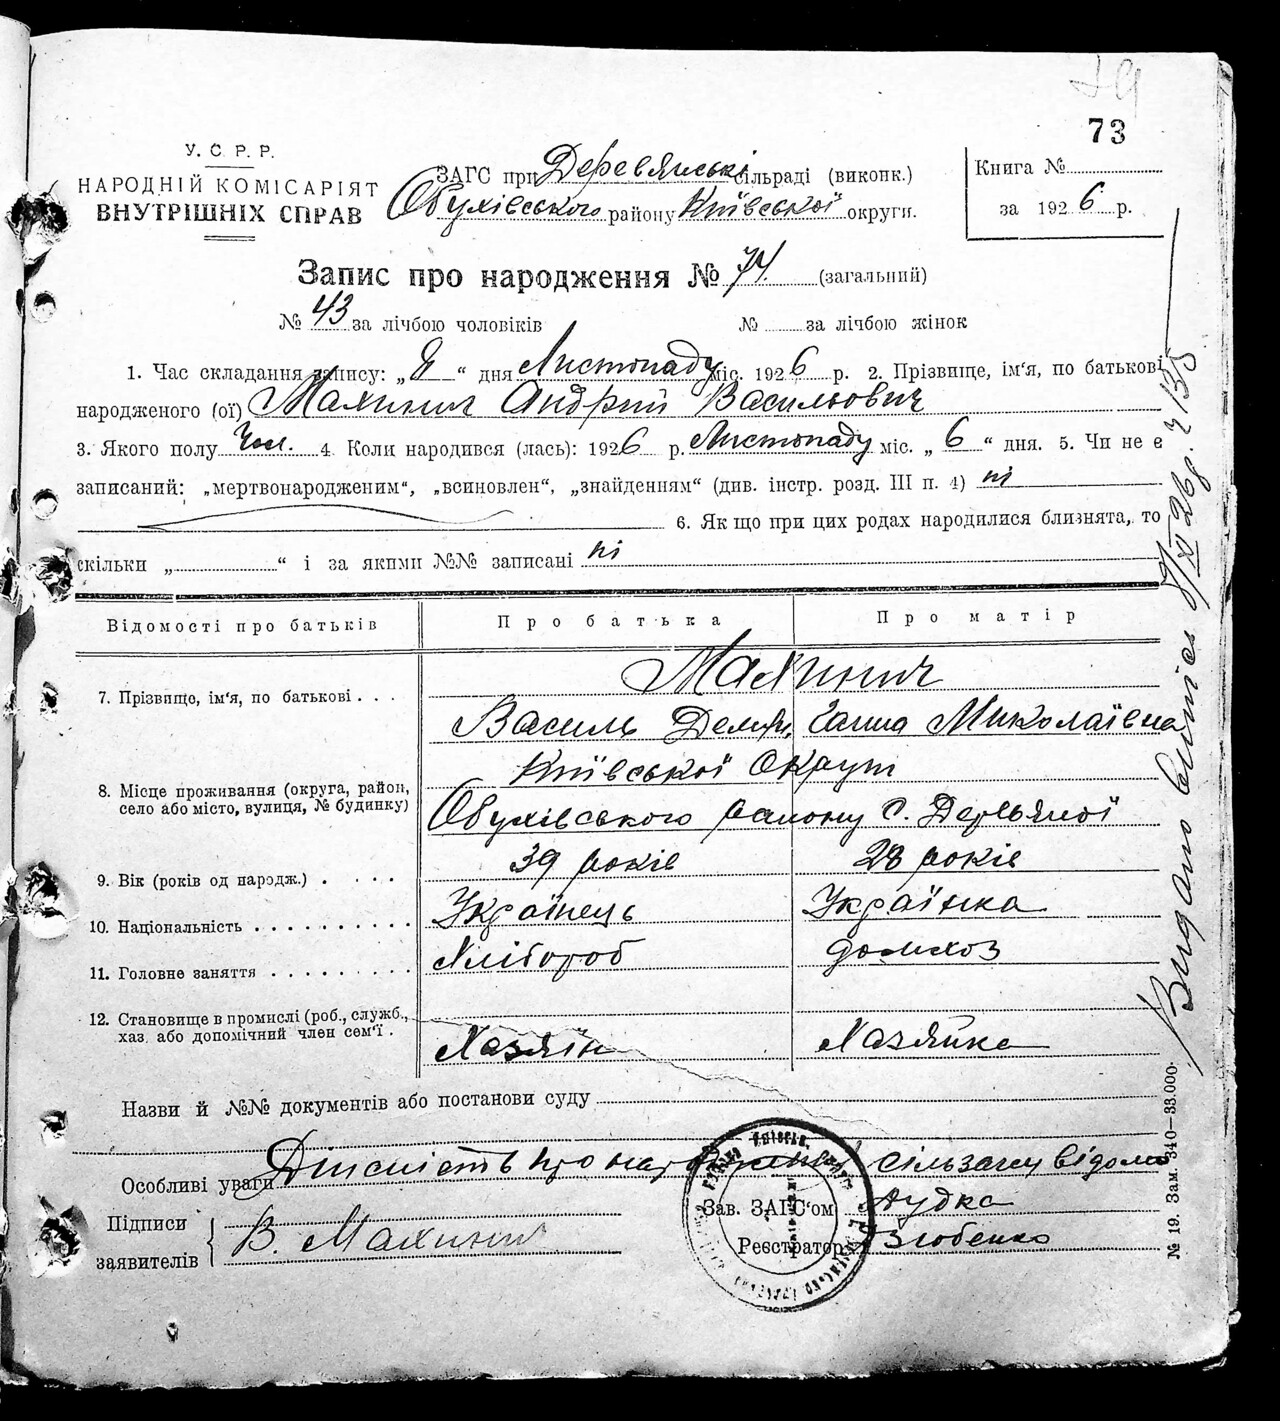 73
У. С. Р. Р.
НАРОДНІЙ КОМІСАРІЯТ
ВНУТРІШНІХ СПРАВ
ЗАГС при Деревянські сільраді (виконк.)
Обухівського району Київської округи.
Книга №
за 1926 р.
Запис про народження № 74. (загальний)
№ 43 за лічбою чоловіків № за лічбою жінок
1. Час складання запису: „ 8 “ дня Листопаду міс. 1926 р. 2. Прізвище, ім'я, по батькові
народженого (ої) Махинич Андрий Васильович
3. Якого полу Чол. 4. Коли народився (лась): 1926 р. Листопаду міс. „ 6 “ дня. 5. Чи не є
записаний: „мертвонародженим“, „всиновлен“, „знайденням“ (див. інстр. розд. III п. 4) ні
6. Як що при цих родах народилися близнята, то
скільки „ “ і за якими №№ записані ні
Відомості про батьків Про батька Про матір
7. Прізвище, ім'я, по батькові . . . Махинич
Василь Ганна Миколаївна
8. Місце проживання (округа, район, село або місто, вулиця, № будинку) Київської Округи
Обухівського району С. Деревяної
9. Вік (років од народж.) . . . . 39 років 28 років
10. Національність . . . . . . . . . . Українець Українка
11. Головне заняття . . . . . . . . . Хлібороб домхоз
12. Становище в промислі (роб., служб., хаз. або допомічний член сем'ї . Хазяїн Хазяйка
Назви й №№ документів або постанови суду
Особливі уваги Дійсність про народження сільзагсу відома
Підписи заявителів В. Махинич
Зав. ЗАГС'ом Дудка
Реєстратор Злобенко
№ 19. Зам. 340—33.000.
Видано витяг 8/XI 26 р. ч 135